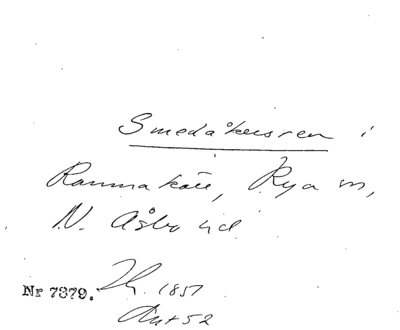 Smedåkersren i
Rammakåll, Rya sn,
N. Åsbo hd
Nr 7379. 1857
Ant 52